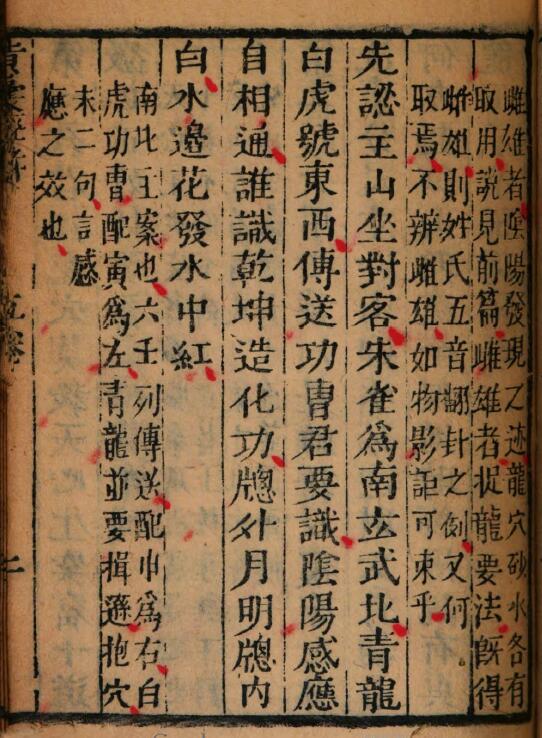 雌雄者陰陽發現之迹龍穴砂水各有
取用說見前篇雌雄者龍要法旣得
雌雄則姓氏五音翻針之例又何
取焉不辨雌雄如物影詎可束乎
先認主山坐對客朱雀爲南玄武北青龍
白虎號東西傳送功曹君要識陰陽感應
自相通誰識乾坤造化功牕外月明牕內
白水邊花發水中紅
南北主案也六壬列傳送配申爲右白
虎功曹配寅爲左青龍並要揖遜抱穴
末二句言感
應之效也
二